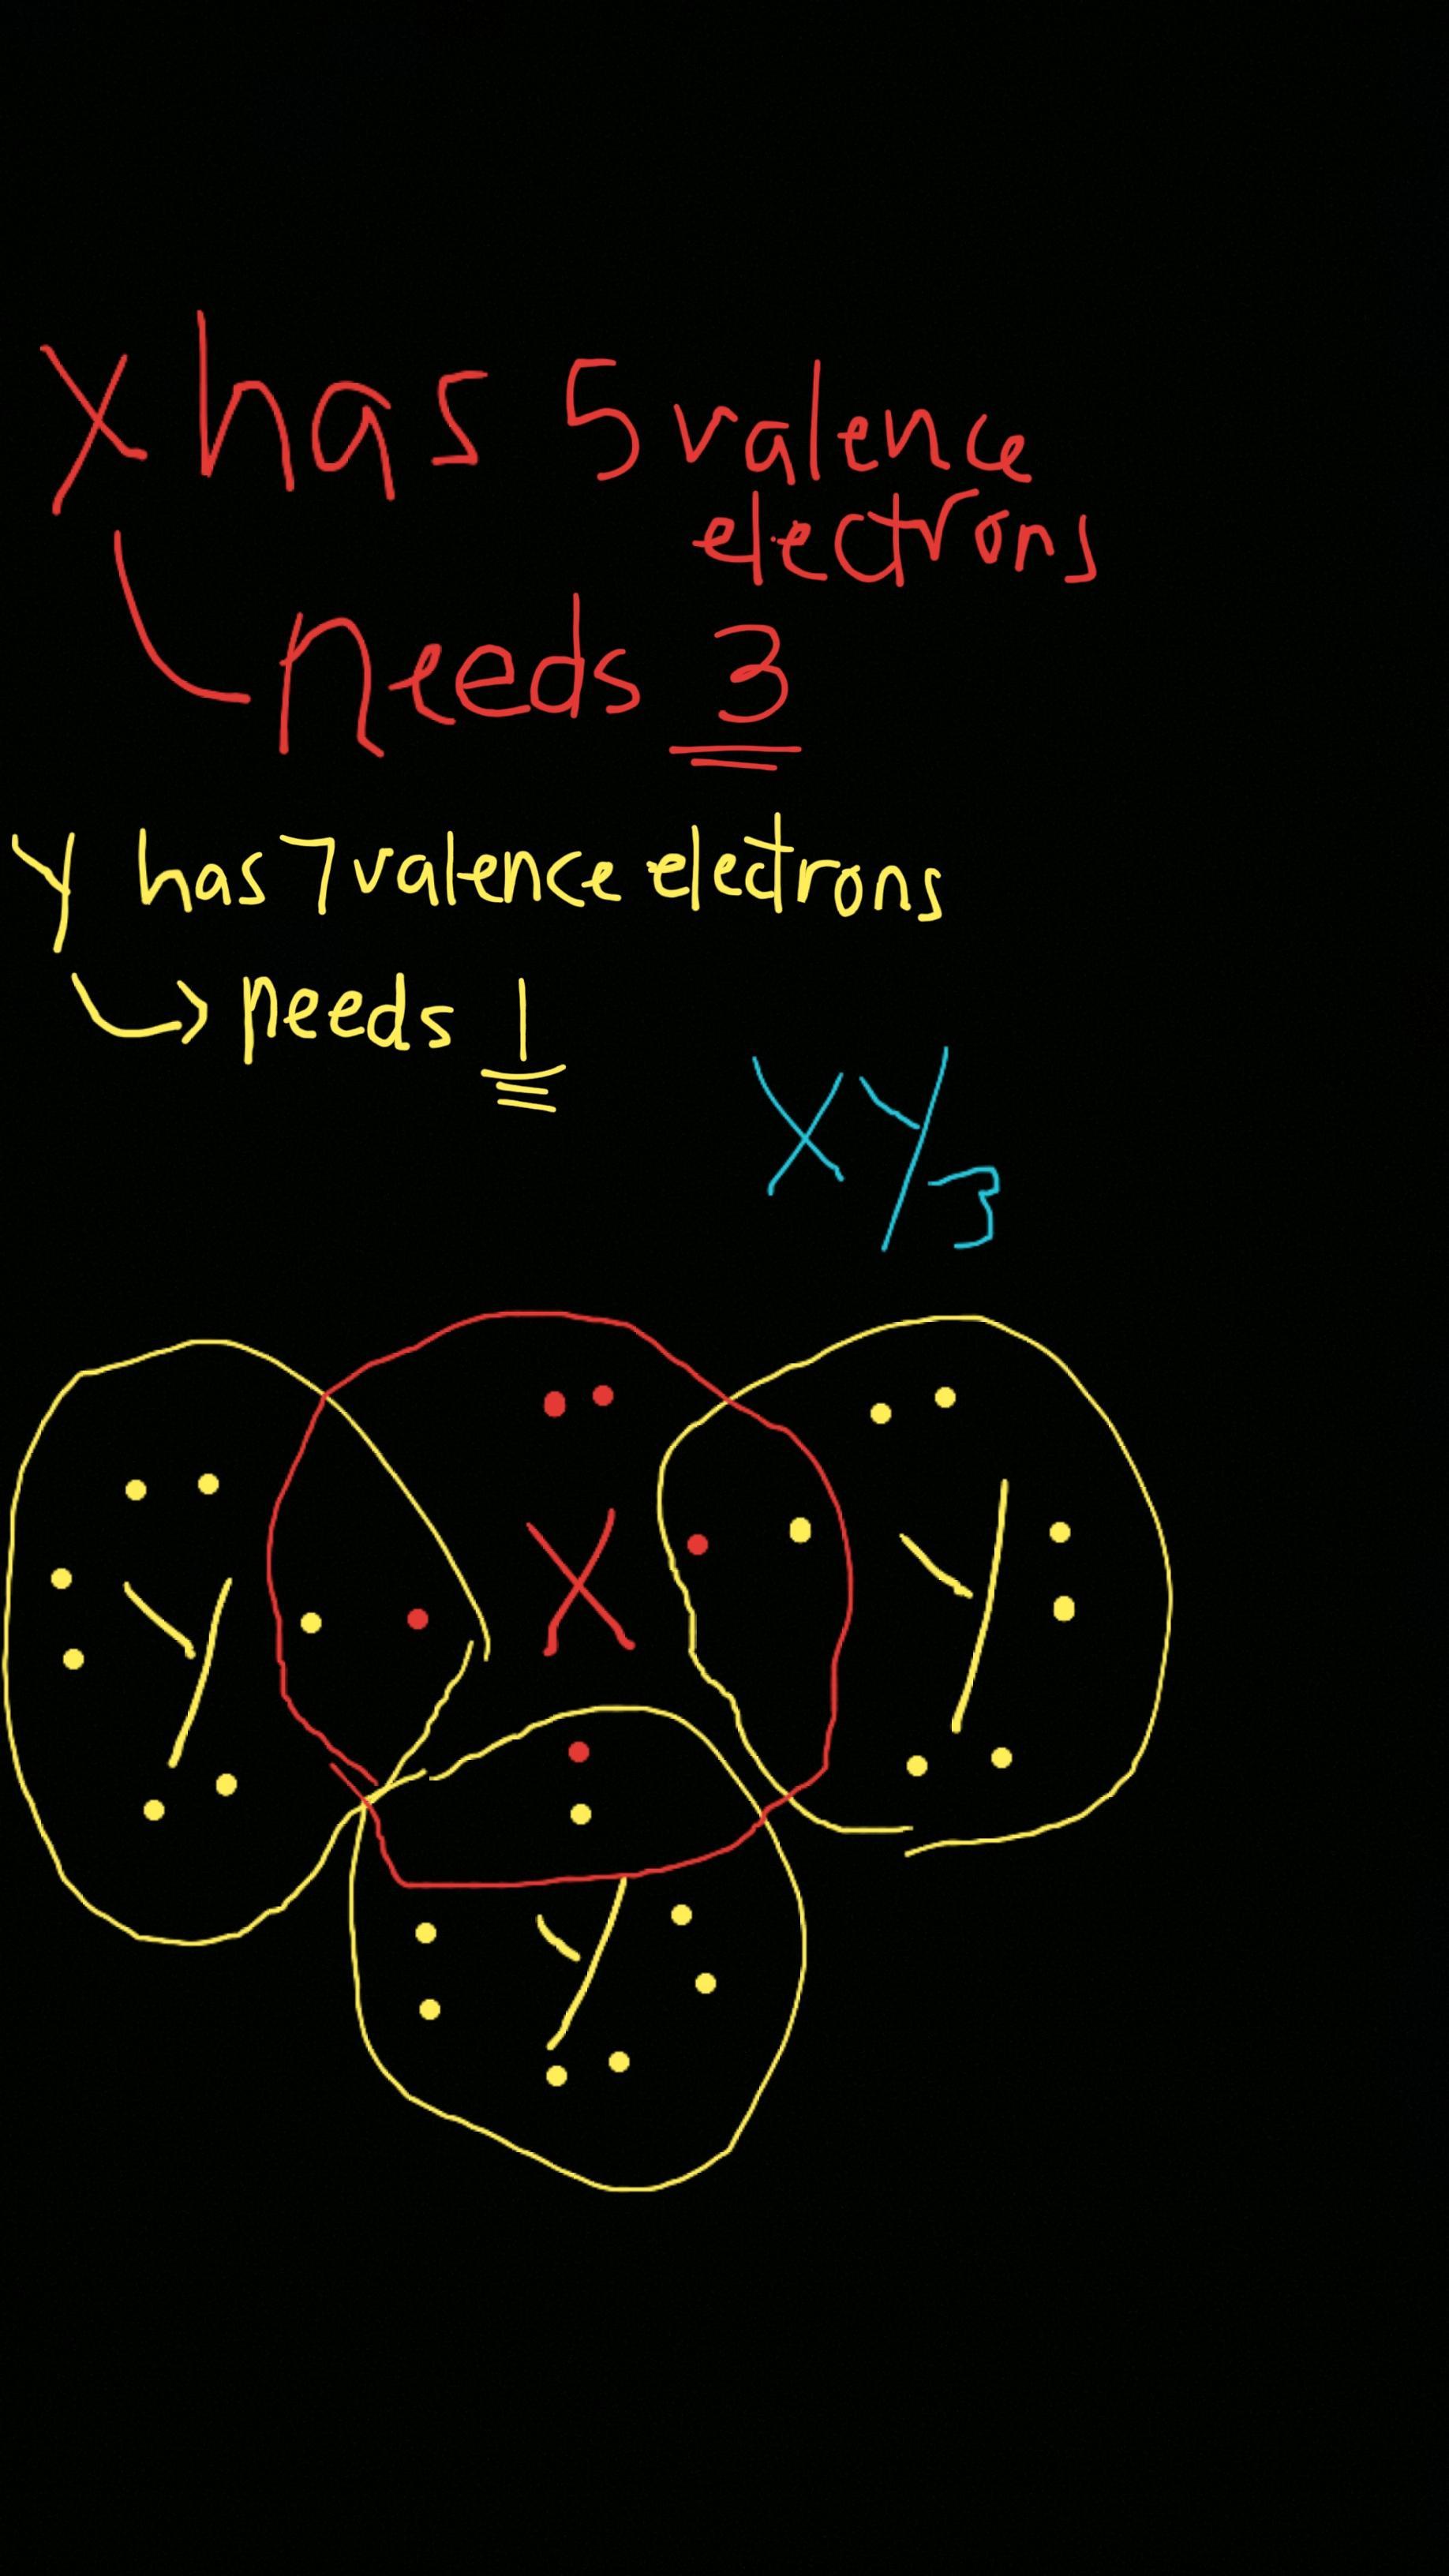 X has 5 valence
electrons
needs 3
Y has 7 valence electrons
needs 1
XY3
X
Y
Y
Y